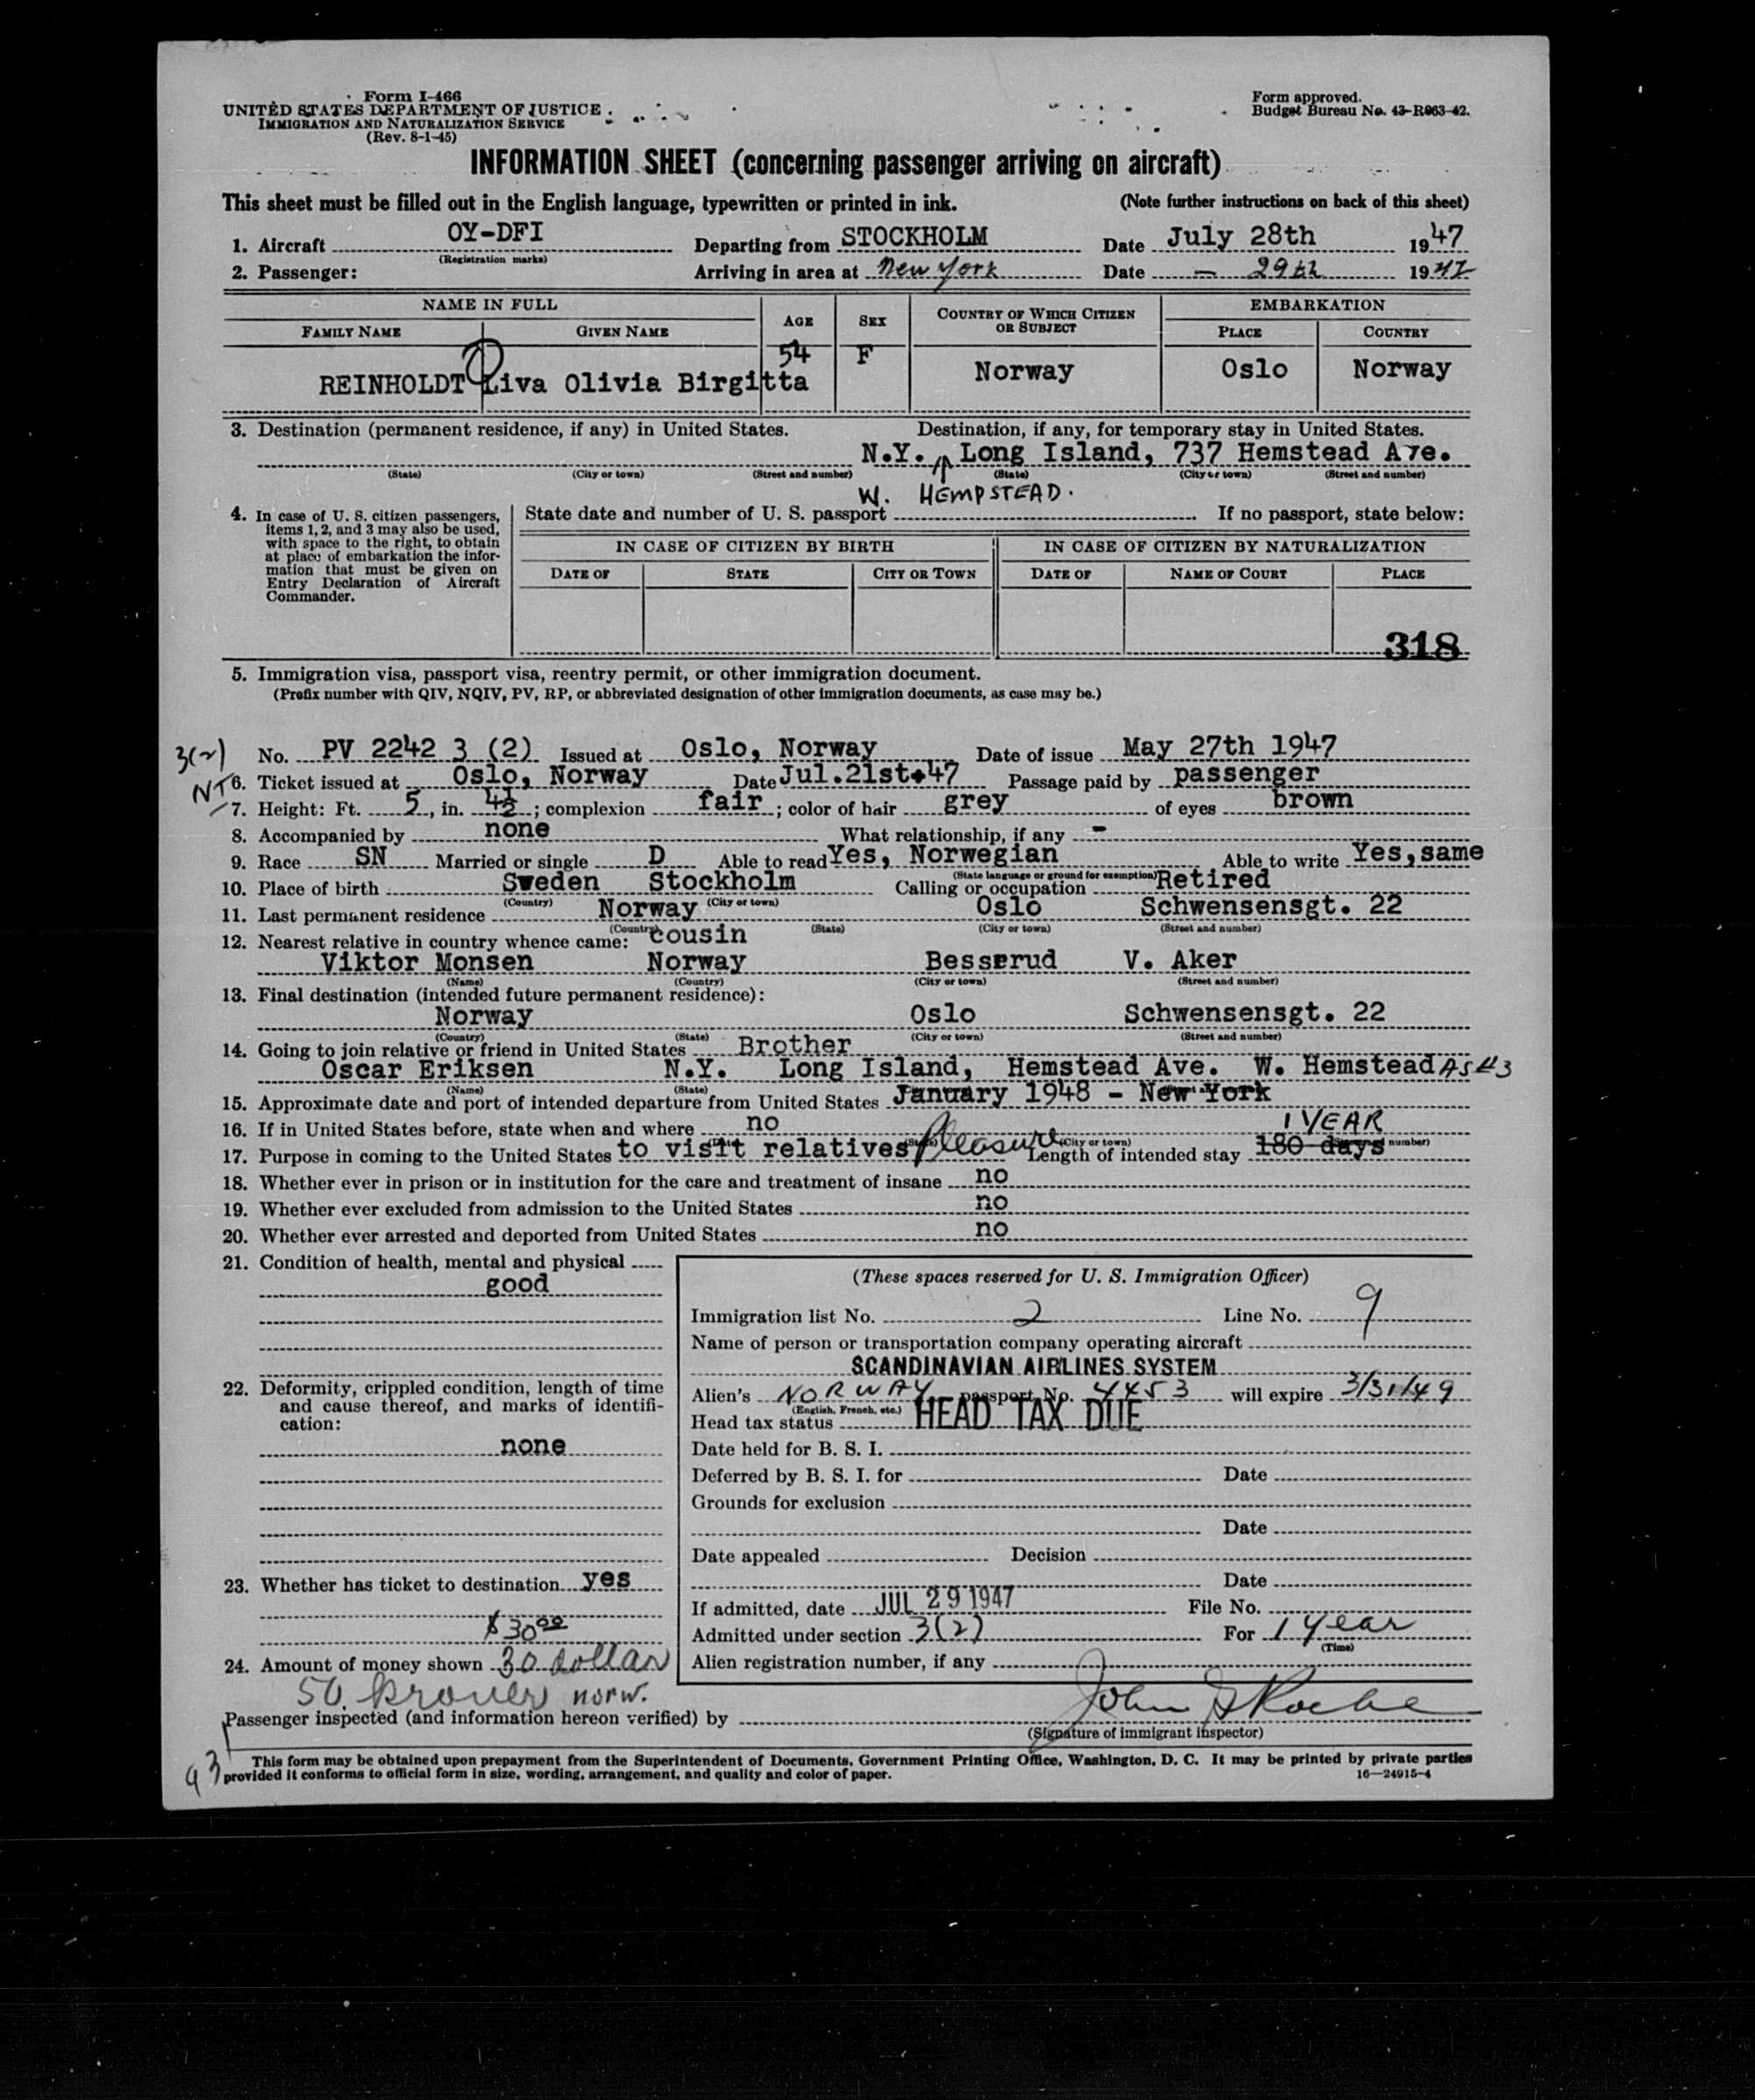 Form I-466
UNITED STATES DEPARTMENT OF JUSTICE
IMMIGRATION AND NATURALIZATION SERVICE
(Rev. 8-1-45)
Form approved.
Budget Bureau No. 43-R063-42.
INFORMATION SHEET (concerning passenger arriving on aircraft)
This sheet must be filled out in the English language, typewritten or printed in ink. (Note further instructions on back of this sheet)
1. Aircraft OY-DFI Departing from STOCKHOLM Date July 28th 1947
(Registration marks)
2. Passenger: Arriving in area at New York Date — 29th 1947
NAME IN FULL AGE SEX COUNTRY OF WHICH CITIZEN OR SUBJECT EMBARKATION
FAMILY NAME GIVEN NAME PLACE COUNTRY
REINHOLDT Liva Olivia Birgitta 54 F Norway Oslo Norway
3. Destination (permanent residence, if any) in United States. Destination, if any, for temporary stay in United States.
N.Y. Long Island, 737 Hemstead Ave.
(State) (City or town) (Street and number) (State) (City or town) (Street and number)
W. HEMPSTEAD.
4. In case of U. S. citizen passengers, items 1, 2, and 3 may also be used, with space to the right, to obtain at place of embarkation the information that must be given on Entry Declaration of Aircraft Commander.
State date and number of U. S. passport If no passport, state below:
IN CASE OF CITIZEN BY BIRTH IN CASE OF CITIZEN BY NATURALIZATION
DATE OF STATE CITY OR TOWN DATE OF NAME OF COURT PLACE
318
5. Immigration visa, passport visa, reentry permit, or other immigration document.
(Prefix number with QIV, NQIV, PV, RP, or abbreviated designation of other immigration documents, as case may be.)
3(2) No. PV 2242 3 (2) Issued at Oslo, Norway Date of issue May 27th 1947
NT 6. Ticket issued at Oslo, Norway Date Jul.21st.47 Passage paid by passenger
7. Height: Ft. 5, in. 4½; complexion fair; color of hair grey of eyes brown
8. Accompanied by none What relationship, if any -
9. Race SN Married or single D Able to read Yes, Norwegian Able to write Yes, same
(State language or ground for exemption)
10. Place of birth Sweden Stockholm Calling or occupation Retired
(Country) (City or town)
11. Last permanent residence Norway Oslo Schwensensgt. 22
(Country) (State) (City or town) (Street and number)
12. Nearest relative in country whence came: cousin
Viktor Monsen Norway Besserud V. Aker
(Name) (Country) (City or town) (Street and number)
13. Final destination (intended future permanent residence):
Norway Oslo Schwensensgt. 22
(Country) (State) (City or town) (Street and number)
14. Going to join relative or friend in United States Brother
Oscar Eriksen N.Y. Long Island, Hemstead Ave. W. Hemstead AS #3
(Name) (State)
15. Approximate date and port of intended departure from United States January 1948 - New York
16. If in United States before, state when and where no 1 YEAR
(City or town) number)
17. Purpose in coming to the United States to visit relatives Pleasure Length of intended stay 180 days
18. Whether ever in prison or in institution for the care and treatment of insane no
19. Whether ever excluded from admission to the United States no
20. Whether ever arrested and deported from United States no
21. Condition of health, mental and physical
good
22. Deformity, crippled condition, length of time and cause thereof, and marks of identification:
none
23. Whether has ticket to destination yes
$30 00
24. Amount of money shown 30 dollar
50 kroner norw.
(These spaces reserved for U. S. Immigration Officer)
Immigration list No. 2 Line No. 9
Name of person or transportation company operating aircraft
SCANDINAVIAN AIRLINES SYSTEM
Alien's NORWAY passport No. 4453 will expire 3/31/49
(English, French, etc.)
Head tax status HEAD TAX DUE
Date held for B. S. I.
Deferred by B. S. I. for Date
Grounds for exclusion
Date
Date appealed Decision
Date
If admitted, date JUL 29 1947 File No.
Admitted under section 3(2) For 1 Year
(Time)
Alien registration number, if any
Passenger inspected (and information hereon verified) by John Roche
(Signature of immigrant inspector)
93
This form may be obtained upon prepayment from the Superintendent of Documents, Government Printing Office, Washington, D. C. It may be printed by private parties
provided it conforms to official form in size, wording, arrangement, and quality and color of paper. 16—24915-4